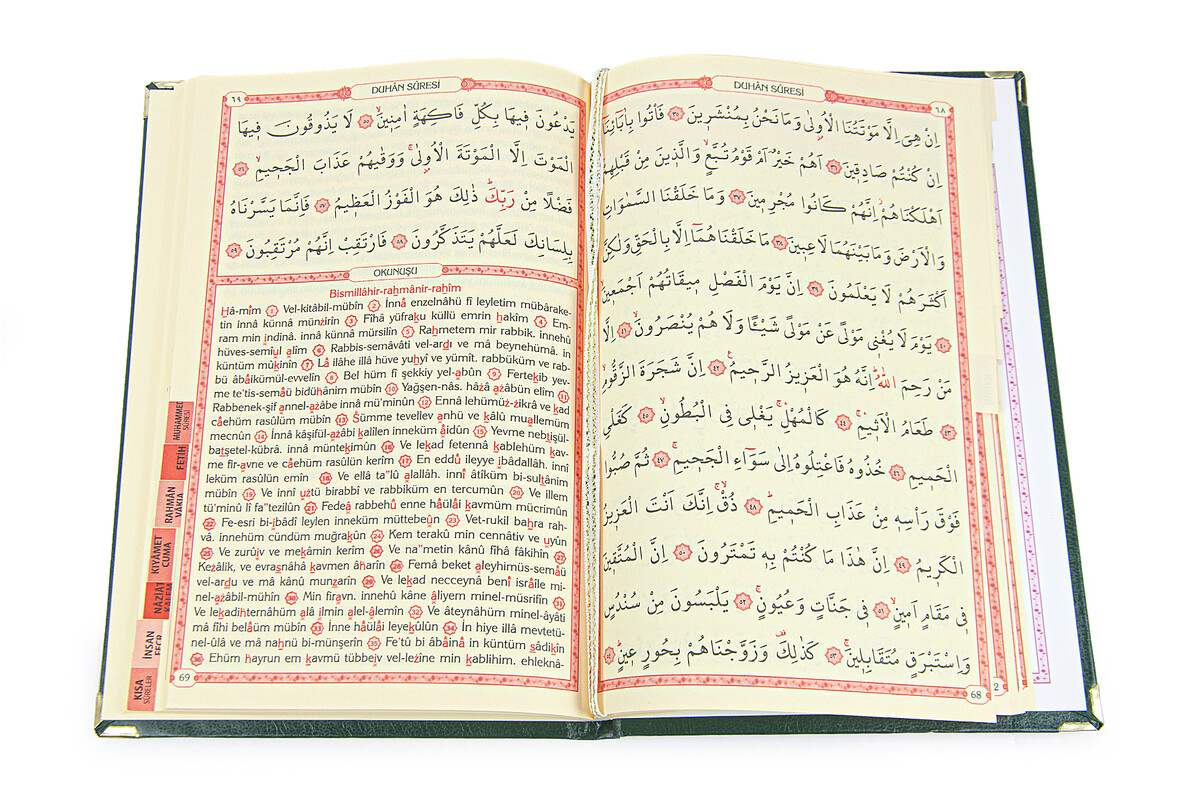 DUHÂN SÛRESİ
٦٨
اِنْ هِيَ اِلَّا مَوْتَتُنَا الْاُو۫لٰى وَمَا نَحْنُ بِمُنْشَر۪ينَ ٣٥ فَأْتُوا بِاٰبَٓائِنَٓا
اِنْ كُنْتُمْ صَادِق۪ينَ ٣٦ اَهُمْ خَيْرٌ اَمْ قَوْمُ تُبَّعٍۙ وَالَّذ۪ينَ مِنْ قَبْلِهِمْ
اَهْلَكْنَاهُمْ اِنَّهُمْ كَانُوا مُجْرِم۪ينَ ٣٧ وَمَا خَلَقْنَا السَّمٰوَاتِ
وَالْاَرْضَ وَمَا بَيْنَهُمَا لَاعِب۪ينَ ٣٨ مَا خَلَقْنَاهُمَٓا اِلَّا بِالْحَقِّ وَلٰكِنَّ
اَكْثَرَهُمْ لَا يَعْلَمُونَ ٣٩ اِنَّ يَوْمَ الْفَصْلِ م۪يقَاتُهُمْ اَجْمَع۪ينَۙ
٤٠ يَوْمَ لَا يُغْن۪ي مَوْلًى عَنْ مَوْلًى شَيْـًٔا وَلَا هُمْ يُنْصَرُونَۙ ٤١ اِلَّا
مَنْ رَحِمَ اللّٰهُۜ اِنَّهُ هُوَ الْعَز۪يزُ الرَّح۪يمُ۟ ٤٢ اِنَّ شَجَرَةَ الزَّقُّومِۙ
٤٣ طَعَامُ الْاَث۪يمِۚ ٤٤ كَالْمُهْلِۚ يَغْل۪ي فِي الْبُطُونِۙ ٤٥ كَغَلْيِ
الْحَم۪يمِ ٤٦ خُذُوهُ فَاعْتِلُوهُ اِلٰى سَوَٓاءِ الْجَح۪يمِۚ ٤٧ ثُمَّ صُبُّوا
فَوْقَ رَأْسِه۪ مِنْ عَذَابِ الْحَم۪يمِۜ ٤٨ ذُقْۚ اِنَّكَ اَنْتَ الْعَز۪يزُ
الْكَر۪يمُ ٤٩ اِنَّ هٰذَا مَا كُنْتُمْ بِه۪ تَمْتَرُونَ ٥٠ اِنَّ الْمُتَّق۪ينَ
ف۪ي مَقَامٍ اَم۪ينٍۙ ٥١ ف۪ي جَنَّاتٍ وَعُيُونٍۚ ٥٢ يَلْبَسُونَ مِنْ سُنْدُسٍ
وَاِسْتَبْرَقٍ مُتَقَابِل۪ينَۚ ٥٣ كَذٰلِكَ۠ وَزَوَّجْنَاهُمْ بِحُورٍ ع۪ينٍۜ ٥٤
68
2
DUHÂN SÛRESİ
٦٩
يَدْعُونَ ف۪يهَا بِكُلِّ فَاكِهَةٍ اٰمِن۪ينَۙ ٥٥ لَا يَذُوقُونَ ف۪يهَا
الْمَوْتَ اِلَّا الْمَوْتَةَ الْاُو۫لٰىۚ وَوَقٰيهُمْ عَذَابَ الْجَح۪يمِۙ ٥٦
فَضْلًا مِنْ رَبِّكَۜ ذٰلِكَ هُوَ الْفَوْزُ الْعَظ۪يمُ ٥٧ فَاِنَّمَا يَسَّرْنَاهُ
بِلِسَانِكَ لَعَلَّهُمْ يَتَذَكَّرُونَ ٥٨ فَارْتَقِبْ اِنَّهُمْ مُرْتَقِبُونَ ٥٩
OKUNUŞU
Bismillâhir-rahmânir-rahîm
Hâ-mîm 1 Vel-kitâbil-mübîn 2 İnnâ enzelnâhü fî leyletim mübârake-
tin innâ künnâ münzirîn 3 Fîhâ yüfraku küllü emrin hakîm 4 Em-
ram min indinâ. innâ künnâ mürsilîn 5 Rahmetem mir rabbik. innehû
hüves-semîul alîm 6 Rabbis-semâvâti vel-ardı ve mâ beynehümâ. in
küntüm mûkinîn 7 Lâ ilâhe illâ hüve yuhyî ve yümît. rabbüküm ve rab-
bü âbâikümül-evvelîn 8 Bel hüm fî şekkiy yel-abûn 9 Fertekıb yev-
me te'tis-semâü bidühânim mübîn 10 Yağşen-nâs. hâzâ azâbün elîm 11
Rabbenek-şif annel-azâbe innâ mü'minûn 12 Ennâ lehümüz-zikrâ ve kad
câehüm rasûlüm mübîn 13 Sümme tevellev anhü ve kâlû muallemüm
mecnûn 14 İnnâ kâşifül-azâbi kalîlen inneküm âidûn 15 Yevme nebtışül-
batşetel-kübrâ. innâ müntekımûn 16 Ve lekad fetennâ kablehüm kav-
me fir-avne ve câehüm rasûlün kerîm 17 En eddû ileyye ıbâdallâh. innî
leküm rasûlün emîn 18 Ve ellâ ta"lû alallâh. innî âtîküm bi-sultânim
mübîn 19 Ve innî uztü birabbî ve rabbiküm en tercumûn 20 Ve illem
tü'minû lî fa"tezilûn 21 Fedeâ rabbehû enne hâülâi kavmüm mücrimûn
22 Fe-esri bi-ıbâdî leylen inneküm müttebeûn 23 Vet-rukil bahra rah-
vâ. innehüm cündüm muğrakûn 24 Kem terakû min cennâtiv ve uyûn
25 Ve zurûıv ve mekâmin kerîm 26 Ve na"metin kânû fîhâ fâkihîn 27
Kezâlik, ve evrasnâhâ kavmen âharîn 28 Femâ beket aleyhimüs-semâü
vel-ardu ve mâ kânû munzarîn 29 Ve lekad necceynâ benî isrâîle mi-
nel-azâbil-mühîn 30 Min firavn. innehû kâne âliyem minel-müsrifîn 31
Ve lekadihternâhüm alâ ılmin alel-âlemîn 32 Ve âteynâhüm minel-âyâti
mâ fîhi belâüm mübîn 33 İnne hâülâi leyekûlûn 34 İn hiye illâ mevtetü-
nel-ûlâ ve mâ nahnü bi-münşerîn 35 Fe'tû bi âbâinâ in küntüm sâdikîn
36 Ehüm hayrun em kavmü tübbeıv vel-lezîne min kablihim. ehleknâ-
69
MUHAMMED
SÛRESİ
FETİH
RAHMÂN
VÂKIA
KIYAMET
CUMA
NÂZİÂT
KALEM
İNSAN
FECR
KISA
SÛRELER